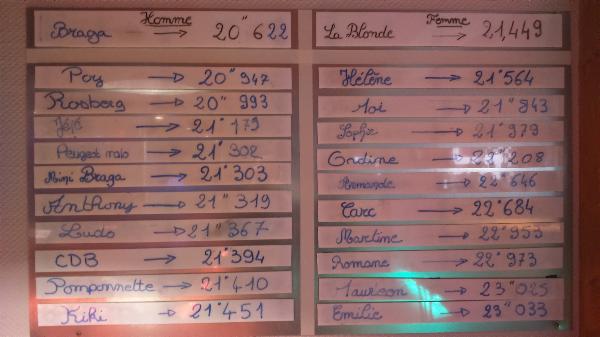 Homme
Braga → 20"622
Poy → 20"947
Rosberg → 20"993
Jéjé → 21"179
Peugeot → 21"302
Mini Braga → 21"303
Anthony → 21"319
Ludo → 21"367
CDB → 21"394
Pomponnette → 21"410
Kiki → 21"451
Femme
La Blonde → 21,449
Hélène → 21"564
Moi → 21"843
21"979
Ondine → 22"208
Armande → 22"646
Caro → 22"684
Martine → 22"953
Romane → 22"973
23"025
Emilie → 23"033